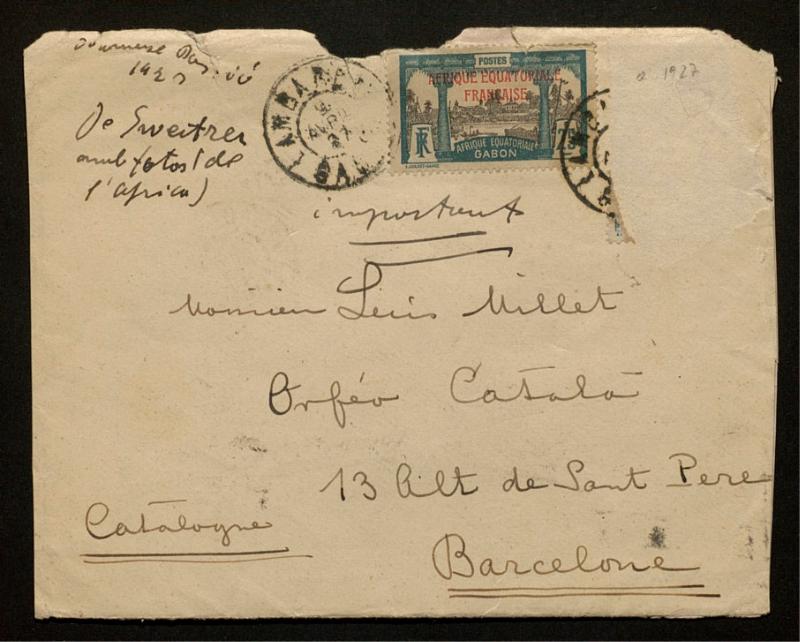 1927
De Sweitzer
amb fotos (de
l'Africa)
LAMBARENE
POSTES
AFRIQUE EQUATORIALE
FRANÇAISE
RF
AFRIQUE EQUATORIALE
GABON
a 1927
important
Monsieur Lluis Millet
Orféo Català
13 Alt de Sant Pere
Catalogne
Barcelone